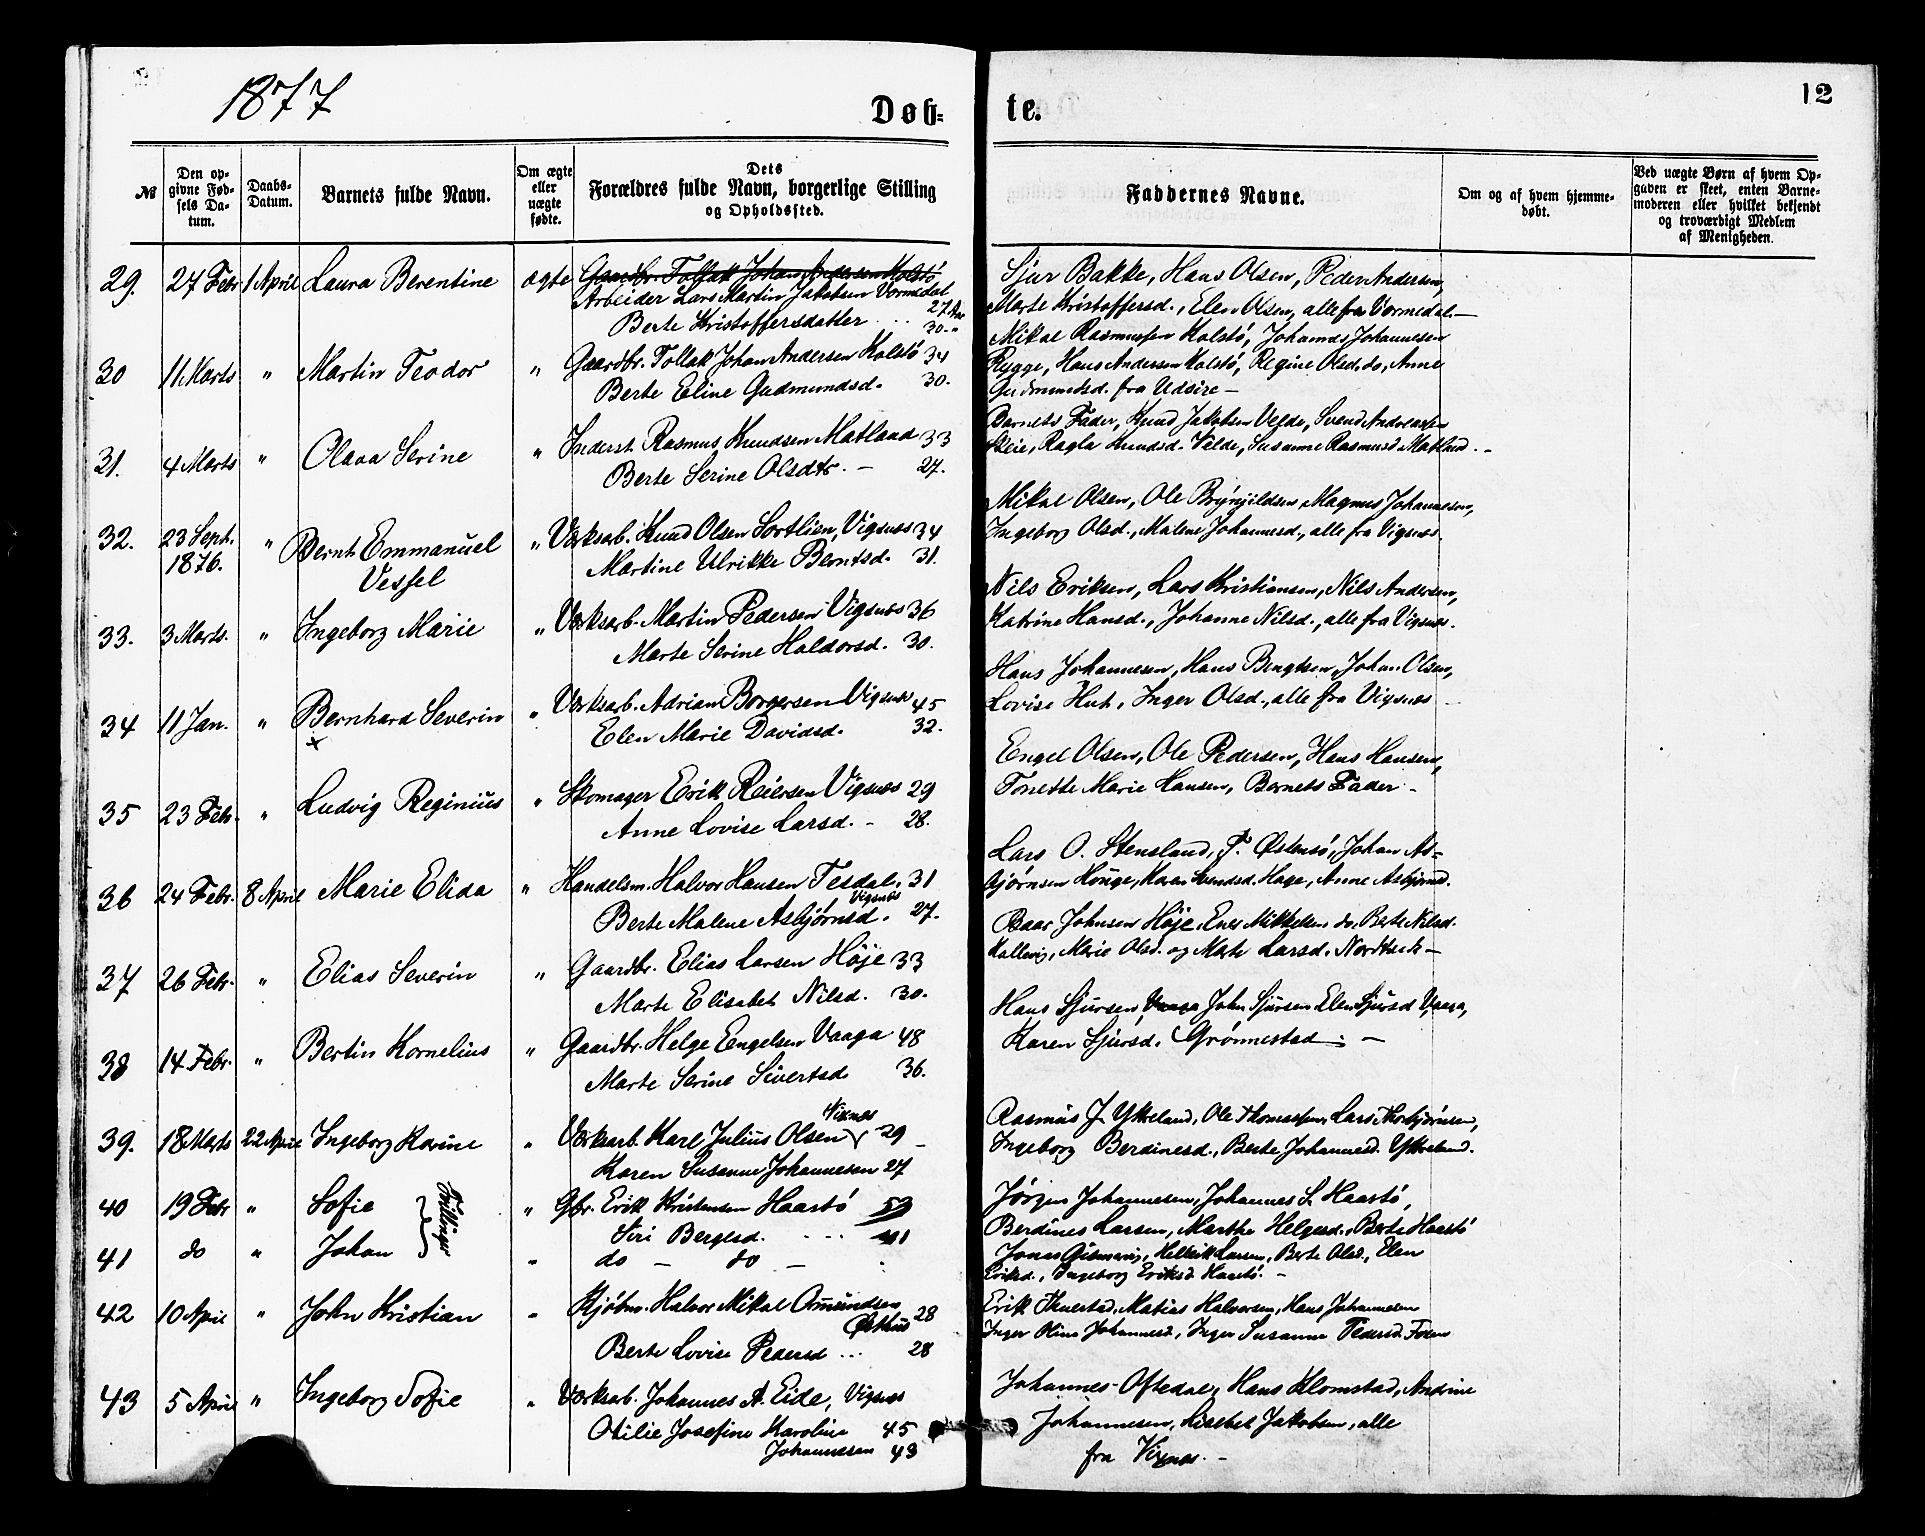 1877
Døb-
te.
12
№
Den op-
givne Fød-
sels Da-
tum.
Daabs-
Datum.
Barnets fulde Navn.
Om ægte
eller
uægte
fødte.
Dets
Forældres fulde Navn, borgerlige Stilling
og Opholdssted.
Faddernes Navne.
Om og af hvem hjemme-
døbt.
Ved uægte Børn af hvem Op-
gaven er skeet, enten Barne-
moderen eller hvilket bekjendt
og troværdigt Medlem
af Menigheden.
29. 27 Febr 1 April Laura Berentine ægte Gaardbr. Tollak Johan Andersen Kolstö
Arbeider Lars Martin Jakobsen Vormedal 27 Aar
Berte Kristoffersdatter ... 30 "
Sjur Bakke, Hans Olsen, Peder Andersen,
Marte Kristoffersd., Elen Olsen, alle fra Vormedal
30 11 Marts " Martin Teodor " Gaardbr. Tollak Johan Andersen Kolstö 34
Berte Eline Gudmundsd. 30.
Mikal Rasmussen Kolstö, Johannes Johannesen
Rygge, Hans Andersen Kolstö, Regine Olsd. do, Anne
Gudmundsd. fra Udsire
31. 4 Marts " Olava Serine " Inderst Rasmus Knudsen Matland 33
Berte Serine Olsdtr. 27.
Barnets Fader, Knud Jakobsen Velde, Svend Andreassen
Skeie, Ragla Knudsd. Velde, Susanne Rasmusd Matland.
32. 23 Sept. 1876. " Bernt Emmanuel
Vessel " Værksarb. Knud Olsen Sortlien, Vigsnæs 34
Martine Ulrikke Berntsd. 31.
Mikal Olsen, Ole Brynjildsen, Magnus Johannesen,
Ingeborg Olsd., Malene Johannesd., alle fra Vigsnæs.
33. 3 Marts. " Ingeborg Marie " Værksarb. Martin Pedersen Vigsnæs 36
Marte Serine Haldorsd. 30.
Nils Eriksen, Lars Kristiansen, Nils Andersen,
Katrine Hansd., Johanne Nilsd., alle fra Vigsnæs.
34 11 Jan. " Bernhard Severin " Værksarb. Adrian Borgersen Vigsnæs 45
x
Elen Marie Davidsd. 32.
Hans Johannesen, Hans Bengtsen, Johan Olsen,
Lovise Huh, Inger Olsd., alle fra Vigsnæs
35 23 Febr. " Ludvig Reginius " Skomager Erik Reiersen Vigsnæs 29
Anne Lovise Larsd. 28.
Engel Olsen, Ole Pedersen, Hans Hansen,
Tonette Marie Hansen, Barnets Fader
36 24 Febr. 8 April Marie Elida " Handelsm. Halvor Hansen Tesdal, 31
Vigsnæs
Berte Malene Asbjørnsd. 27.
Lars O. Stensland, T. Østensö, Johan As-
bjørnsen Houge, Karen Svendsd. Hage, Anne Asbjørnsd.
37 26 Febr. " Elias Severin " Gaardbr. Elias Larsen Höje 33
Marte Elisabet Nilsd. 30.
Baar Johnsen Höje, Ener Mikkelsen do, Berte Nilsd.
Kallevig, Marie Olsd. og Marte Larsd.
38 14 Febr. " Bertin Kornelius " Gaardbr. Helge Engelsen Vaaga 48
Marte Serine Sivertsd 36.
Hans Sjursen, Vaaga John Sjursen, Elen Sjursd Vaaga,
Karen Sjursd. Grønnestad
39. 18 Marts 22 April Ingeborg Karine " Værksarb. Karl Julius Olsen 29
Vixnæs
Karen Susanne Johannesen 27
Rasmus J. Ytreland, Ole Thomassen, Lars Thorbjørnsen,
Ingeborg Berdinesd., Berte Johannesd. Ytreland.
40 19 Febr " Sofie } Tvillinger " Gbr. Erik Kristensen Haastö 53
Siri Bergesd. ... 41
Jörgen Johannesen, Johannes S. Haastö,
Berdines Larsen, Marthe Helgesd., Berte Haastö
41 do " Johan " do — do —
Jonas Gismarvig, Helrik Larsen, Berte Olsd., Elen
Eriksd., Ingeborg Eriksd. Haastö.
42 10 April " John Kristian " Kjöbm. Halvor Mikal Amundsen 28
Østhus
Berte Lovise Pedersd ... 28
Erik Thuestad, Matias Halvorsen, Hans Johannesen
Inger Oline Johannesd, Inger Susanne Pedersd. Fosen
43 5 April " Ingeborg Sofie " Værksarb. Johannes A. Eide, Vigsnæs
Otilie Josefine Karoline 45
Johannesen 43
Johannes Oftedal, Hans Klomstad, Andrine
Johannesen, Lisebet Jakobsen, alle
fra Vixnæs.